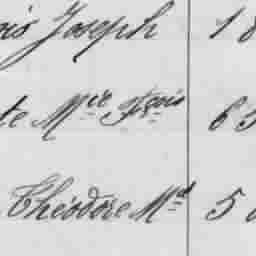 ois Joseph 18
te Mcie Fçois 65
Théodore Md 5